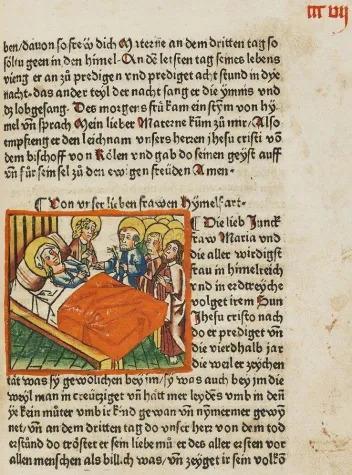 m vij
ben/davon so ſtew dich Materne an dem dritten tag ſo
ſoltu geen in den himel·An dē letſten tag ſeines lebens
vieng er an zů predigen vnd prediget acht ſtund in dye
nacht·das ander teyl der nacht ſang er die ymnis vnd
dz lobgeſang· Des morgens frü kam ein ſtym von hy
mel vn̄ ſprach Mein lieber Materne kum zů mir/Alſo
empfieng er den leichnam vnſers herren jheſu criſti vō
dem biſchoff von Kölen vnd gab do ſeinen geyſt auff
vn̄ für ſein ſel zů den ewigen freüden Amen·
¶ Von vnſer lieben frawen Hymelfart·
¶ Die lieb Junck
fraw Maria vnd
die aller wirdigſt
frau in himelreich
vnd in erdtreyche
volget irem Sun
Jheſu criſto nach
do er prediget vn̄
die vierdhalb jar
die weil er zeychen
tät was ſy gewonlichen bey jm/ſy was auch bey jm die
weyl man in creücziget vn̄ hätt mer leydes vmb in denn
ye kein můter vmb ir kind gewan vn̄ nymermer gewyn
net/vn̄ an dem dritten tag do vnſer herr von dem tod
erſtůnd do tröſtet er ſein liebe mů er des aller erſten vor
allen menſchen als bill.ch was/vn̄ zeyget ir ſein volkō